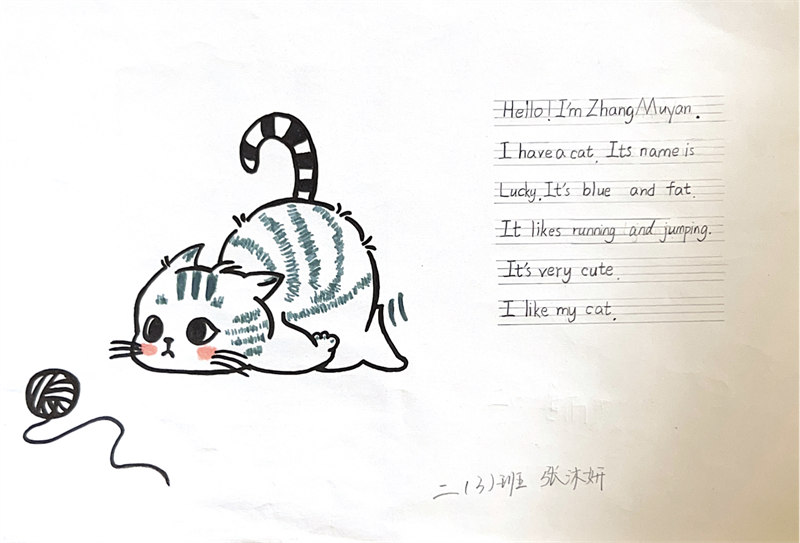 Hello! I'm Zhang Muyan.
I have a cat. Its name is
Lucky. It's blue and fat.
It likes running and jumping.
It's very cute.
I like my cat.
二(3)班 张沐妍